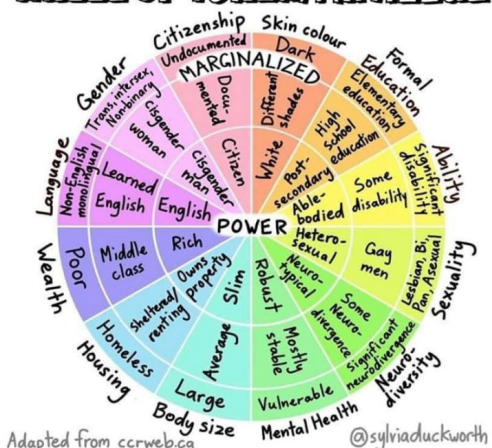 Citizenship
Undocumented
Docu-
mented
Citizen
Skin colour
Dark
Different
shades
White
Formal
Education
Elementary
education
High
School
education
Post-
secondary
Ability
Significant
disability
Some
disability
Able-
bodied
Sexuality
Lesbian, Bi,
Pan, Asexual
Gay
men
Hetero-
sexual
Neuro-
diversity
Significant
neurodivergence
Some
Neuro-
divergence
Neuro-
typical
Mental Health
Vulnerable
Mostly
stable
Robust
Body size
Large
Average
Slim
Housing
Homeless
Sheltered/
renting
Owns
property
Wealth
Poor
Middle
class
Rich
Language
Non-English
monolingual
Learned
English
English
Gender
Trans, intersex,
Non-binary
Cisgender
woman
Cisgender
man
MARGINALIZED
POWER
Adapted from ccrweb.ca
@sylviaduckworth